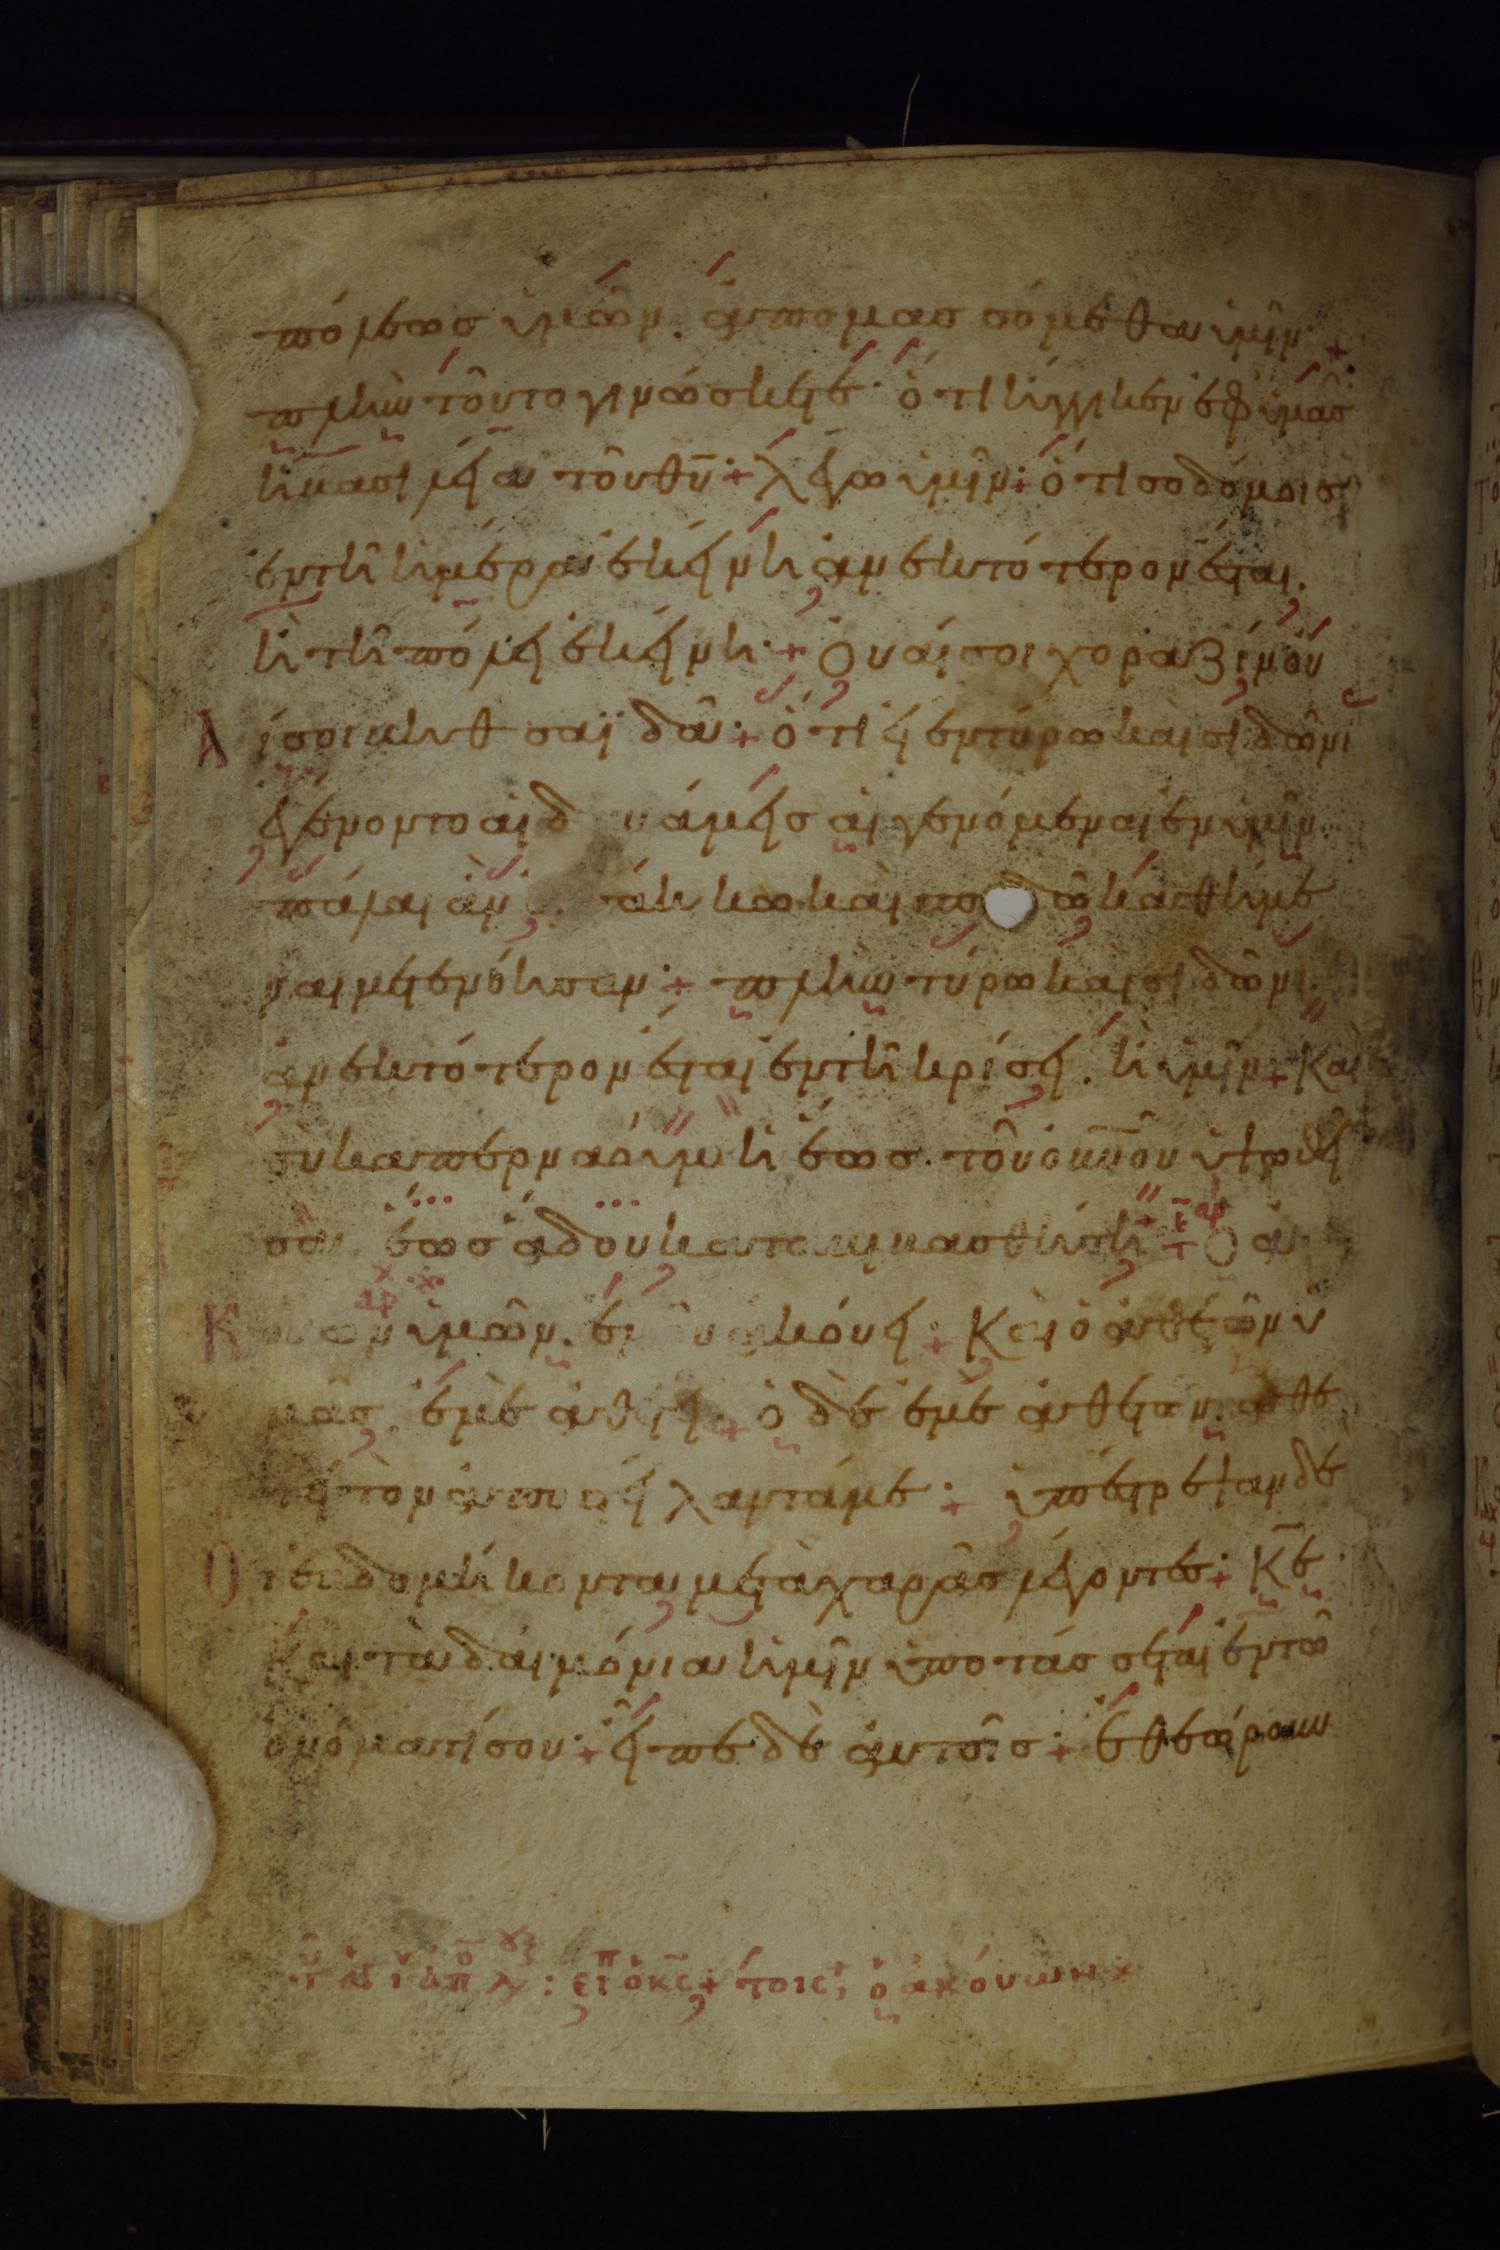 πόλεως ὑμῶν. ἀπομασσόμεθα ὑμῖν+
πλὴν τοῦτο γινώσκετε· ὅτι ἤγγικεν ἐφ ὑμᾶς
ἡ βασιλεία τοῦ θυ·+ λέγω ὑμῖν·+ ὅτι σοδόμοις
ἐν τῆ ἡμέρα ἐκείνη ἀνεκτότερον ἔσται.
ἢ τῆ πόλει ἐκείνη·+ Οὐαί σοι χοραζίν οὐ
αί σοι βηθσαϊδά·+ ὅτι εἰ ἐν τύρω καὶ σιδῶνι
ἐγένοντο αἱ δυνάμεις αἱ γενόμεναι ἐν ὑμῖν.
πάλαι ἂν ἐν σάκκω καὶ σποδῶ καθήμε
ναι μετενόησαν·+ πλὴν τύρω καὶ σιδῶνι
ἀνεκτότερον ἔσται ἐν τῆ κρίσει. ἢ ὑμῖν+ Καὶ
σὺ καπερναούμ ἡ ἕως τοῦ οὐνοῦ ὑψωθεῖ
σα. ἕως ἅδου καταβιβασθήση+ Ὁ ἀ
κούων ὑμῶν. ἐμοῦ ἀκούει+ Καὶ ὁ ἀθετῶν ὑ
μᾶς. ἐμὲ ἀθετεῖ·+ ὁ δὲ ἐμὲ ἀθετῶν. ἀθε
τεῖ τὸν ἀποστείλαντά με·+ ὑπέστρεψαν δὲ
οἱ ἑβδομήκοντα μετὰ χαρᾶς λέγοντες·+ Κε
καὶ τὰ δαιμόνια ἡμῖν ὑποτάσσεται ἐν τῶ
ὀνόματί σου·+ εἶπε δὲ αὐτοῖς·+ ἐθεώρουν
: εἶπ ὁ κς+ τοῖς; ὁ ἀκούων